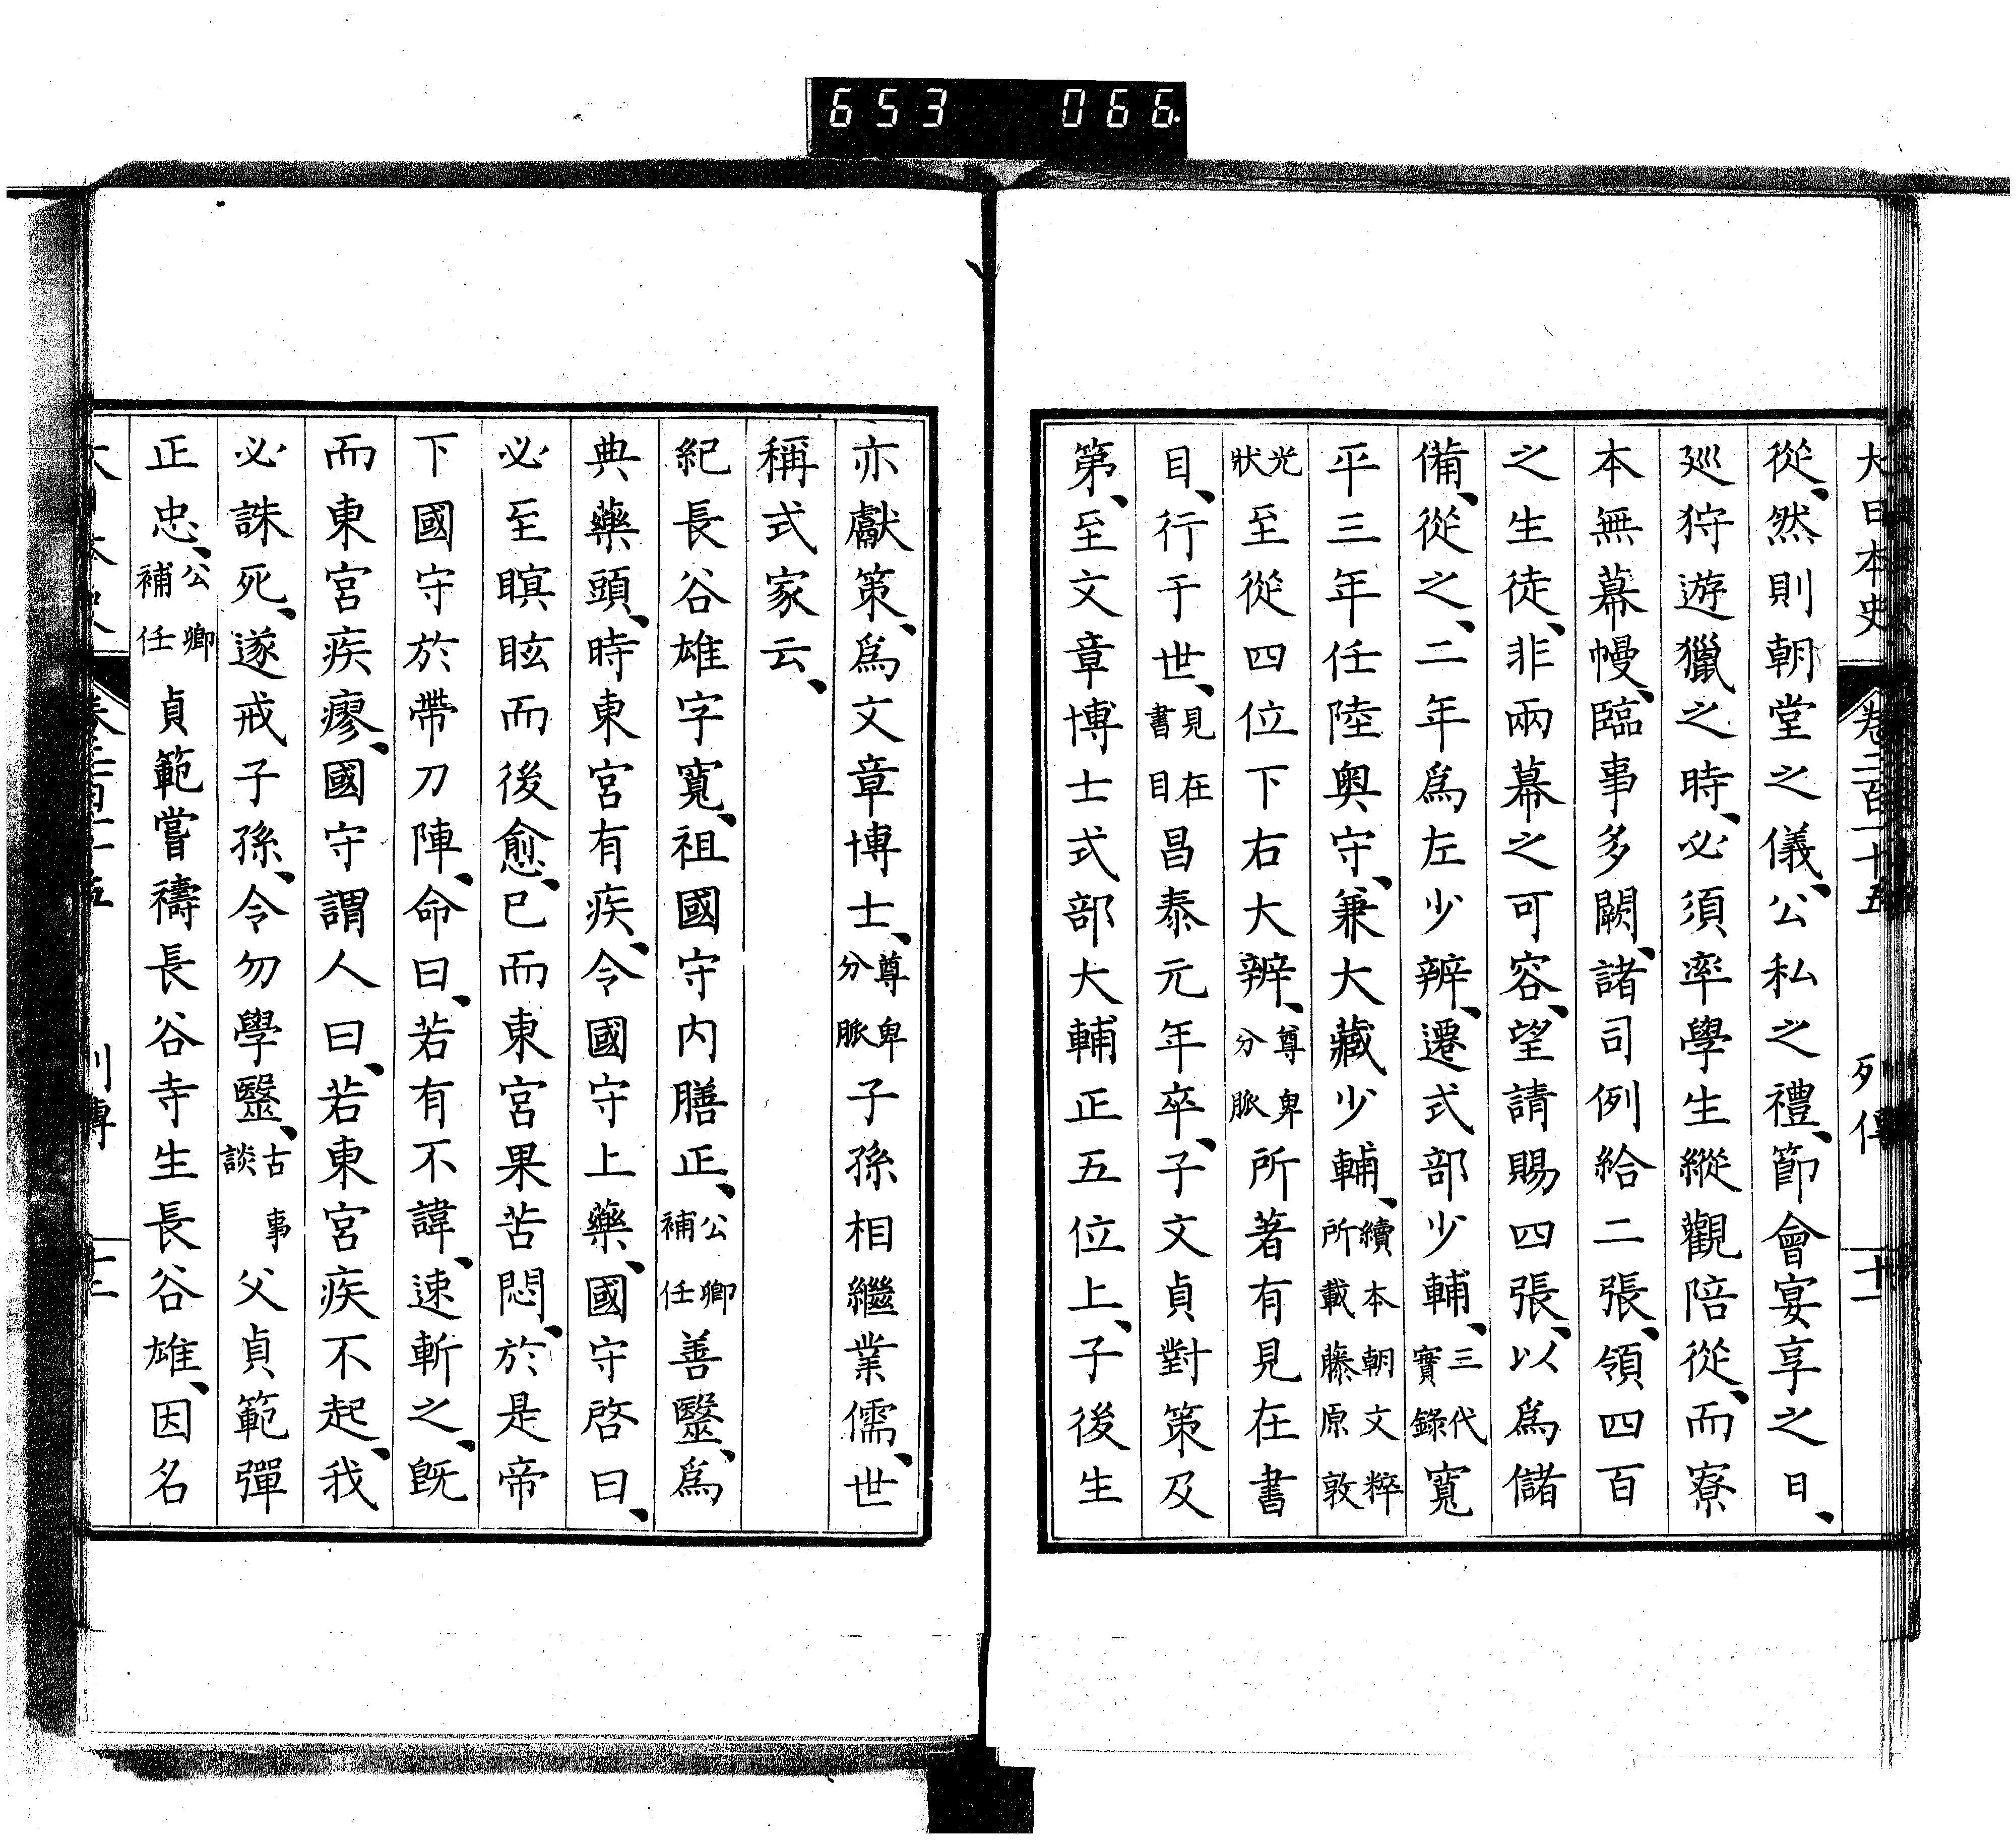 653 066.
大日本史 卷二百一十五 列傳 十一
從、然則朝堂之儀、公私之禮、節會宴享之日、
巡狩遊獵之時、必須率學生縱觀陪從、而寮
本無幕幔、臨事多闕、諸司例給二張、領四百
之生徒、非兩幕之可容、望請賜四張、以爲儲
備、從之、二年爲左少辨、遷式部少輔、三代實錄寬
平三年任陸奧守、兼大藏少輔、續本朝文粹所載藤原敦
光狀至從四位下右大辨、尊卑分脈所著有見在書
目、行于世、見在書目昌泰元年卒、子文貞對策及
第、至文章博士式部大輔正五位上、子後生
亦獻策、爲文章博士、尊卑分脈子孫相繼業儒、世
稱式家云、
紀長谷雄字寬、祖國守內膳正、公卿補任善毉、爲
典藥頭、時東宮有疾、令國守上藥、國守啓曰、
必至瞑眩而後愈、已而東宮果苦悶、於是帝
下國守於帶刀陣、命曰、若有不諱、速斬之、既
而東宮疾瘳、國守謂人曰、若東宮疾不起、我
必誅死、遂戒子孫、令勿學毉、古事談父貞範彈
正忠、公卿補任貞範嘗禱長谷寺生長谷雄、因名